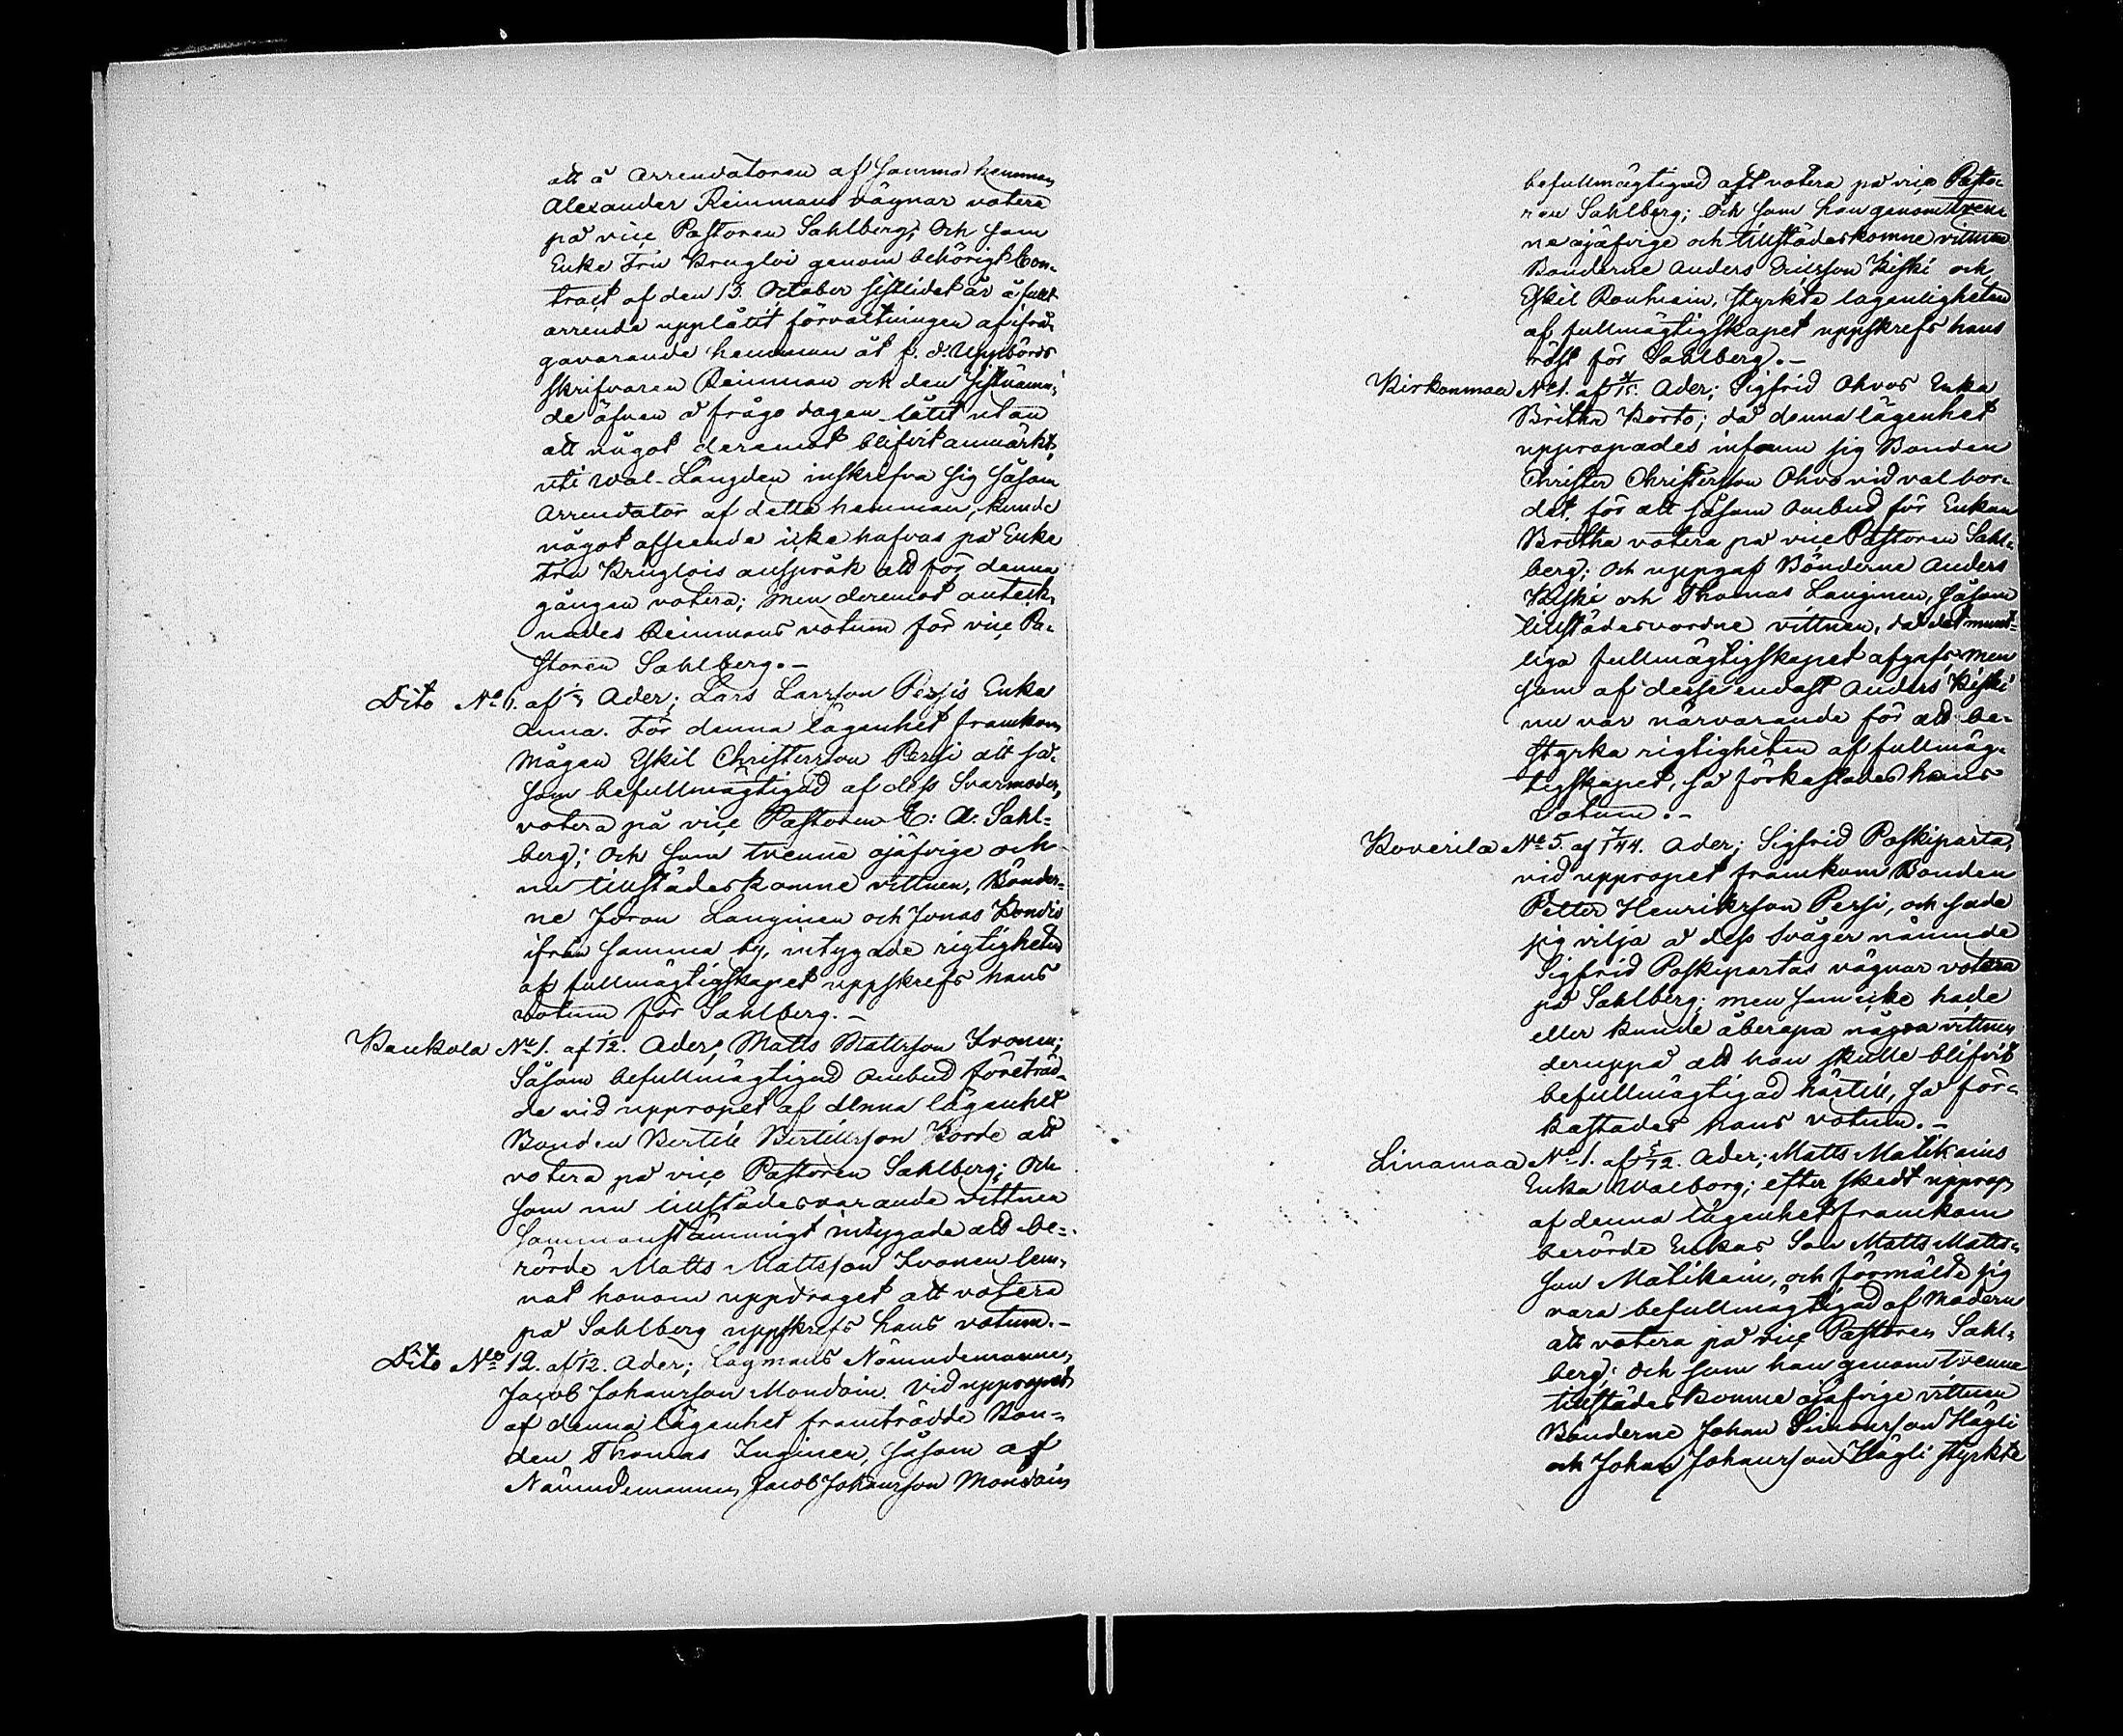 att å Arrendatoren af samma hemman
Alexander Reinmans vägnar votera
på vice Pastoren Sahlberg; Och som
Enke Fru Krugloi genom behörigt Con-
tract af den 13. October sistlidet år å fullt
arrende upplåtit förvaltningen af ifrå-
gavarande hemman åt f. d. Uppbörds
skrifvaren Reinman och den sistnämn-
de äfven å frågo dagen låtit utan
att något deremot blifvit anmärkt,
uti Wal-Längden inskrifva sig såsom
Arrendator af detta hemman, kunde
något afseende icke hafvas på Enke
Fru Kruglois anspråk att för denna
gången votera; men deremot anteck-
nades Reinmans votum för vice Pa-
storen Sahlberg.-
Dito No 6. af 1/3 Ader; Lars Larsson Persis Enka
Anna. För denna lägenhet framkom
Mågen Eskil Christersson Persi att så-
som befullmägtigad af dess Svarmoder,
votera på vice Pastoren E: A: Sahl-
berg; Och som tvenne ojäfvige och
nu tillstädeskomne vittnen, Bönder-
ne Joran Langinen och Jonas Kondio
ifrån samma by, intygade rigtigheten
af fullmägtigskapet uppskrefs hans
votum för Sahlberg.-
Kaukola No 1. af 1/12. Ader; Matts Mattsson Ivonen;
Såsom befullmägtigad Ombud företräd-
de vid uppropet af denna lägenhet
Bonden Bertill Bertillsson Korde att
votera på vice Pastoren Sahlberg; Och
som nu tillstädesvarande vittnen
sammanstämmigt intygade att be-
rörde Matts Mattsson Ivonen lem-
nat honom uppdraget att votera
på Sahlberg uppskrefs hans votum.-
Dito No 12. af 1/12. Ader; Lagmans Nämndemannen,
Jacob Johansson Mondoin. Vid uppropet
af denna lägenhet framträdde Bon-
den Thomas Inginen, såsom af
Nämndemannen Jacob Johansson Mondoin
befullmägtigad att votera på vice Pasto-
ren Sahlberg; Och som han genom tven-
ne ojäfvige och tillstädeskomne vittnen
Bönderne Anders Ericsson Kiski och
Eskil Ronhiain, styrkte lagenligheten
af fullmägtigskapet uppskrefs hans
röst för Sahlberg.-
Kirkonmaa No 1. af Ader; Sigfrid Ohvos Enka
Britha Korto; då denna lägenhet
uppropades infann sig Bonden
Christer Christersson Ohvo vid val bor-
det, för att såsom Ombud för Enkan
Britha votera på vice Pastoren Sahl-
berg; Och uppgaf Bönderne Anders
Kiski och Thomas Langinen, såsom
tillstädesvordne vittnen, då det munt-
liga fullmägtigskapet afgafs, men
som af desse endast Anders Kiski
nu var närvarande för att be-
styrka rigtigheten af fullmäg-
tigskapet, så förkastades hans
Votum.-
Koverila No 5. af 7/144. Ader; Sigfrid Poskiparta,
vid uppropet framkom Bonden
Petter Henriksson Persi, och sade
sig vilja å dess Svåger nämnde
Sigfrid Poskipartas vägnar votera
på Sahlberg; men som icke hade
eller kunde åberopa några vittnen
deruppå att han skulle blifvit
befullmägtigad härtill, så för-
kastades hans Votum.-
Linamaa No 1. af 5/12. Ader; Matts Matikains
Enka Walborg; efter skedt upprop,
af denna lägenhet framkom
berörde Enkas Son Matts Matts-
son Matikain, och förmälde sig
vara befullmägtigad af Modern
att votera på vice Pastoren Sahl-
berg; Och som han genom tvenne
tillstädeskomne ojäfvige vittnen
Bönderne Johan Simonsson Hägli
och Johan Johansson Hägli styrkte